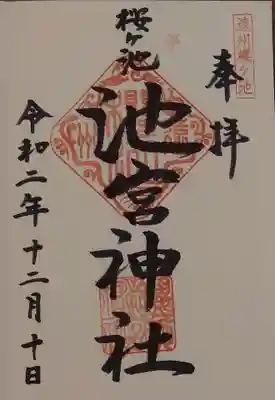 遠州桜ヶ池
奉拝
桜ヶ池
池宮神社
令和二年十二月十日